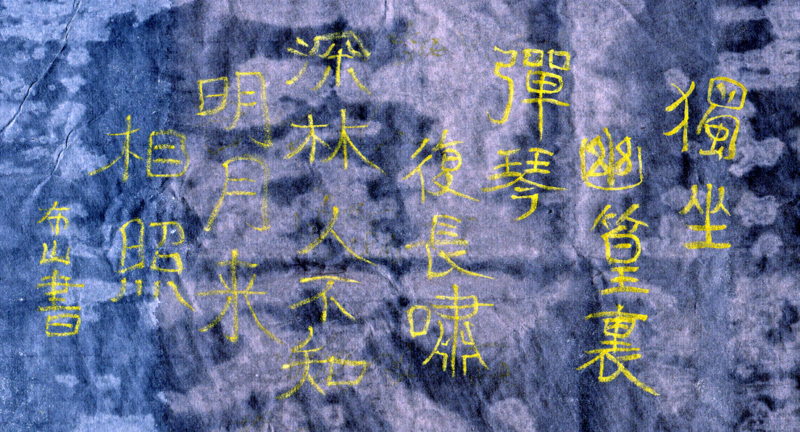 獨坐
幽篁裏
彈琴
復長嘯
深林人不知
明月来
相照
布山書